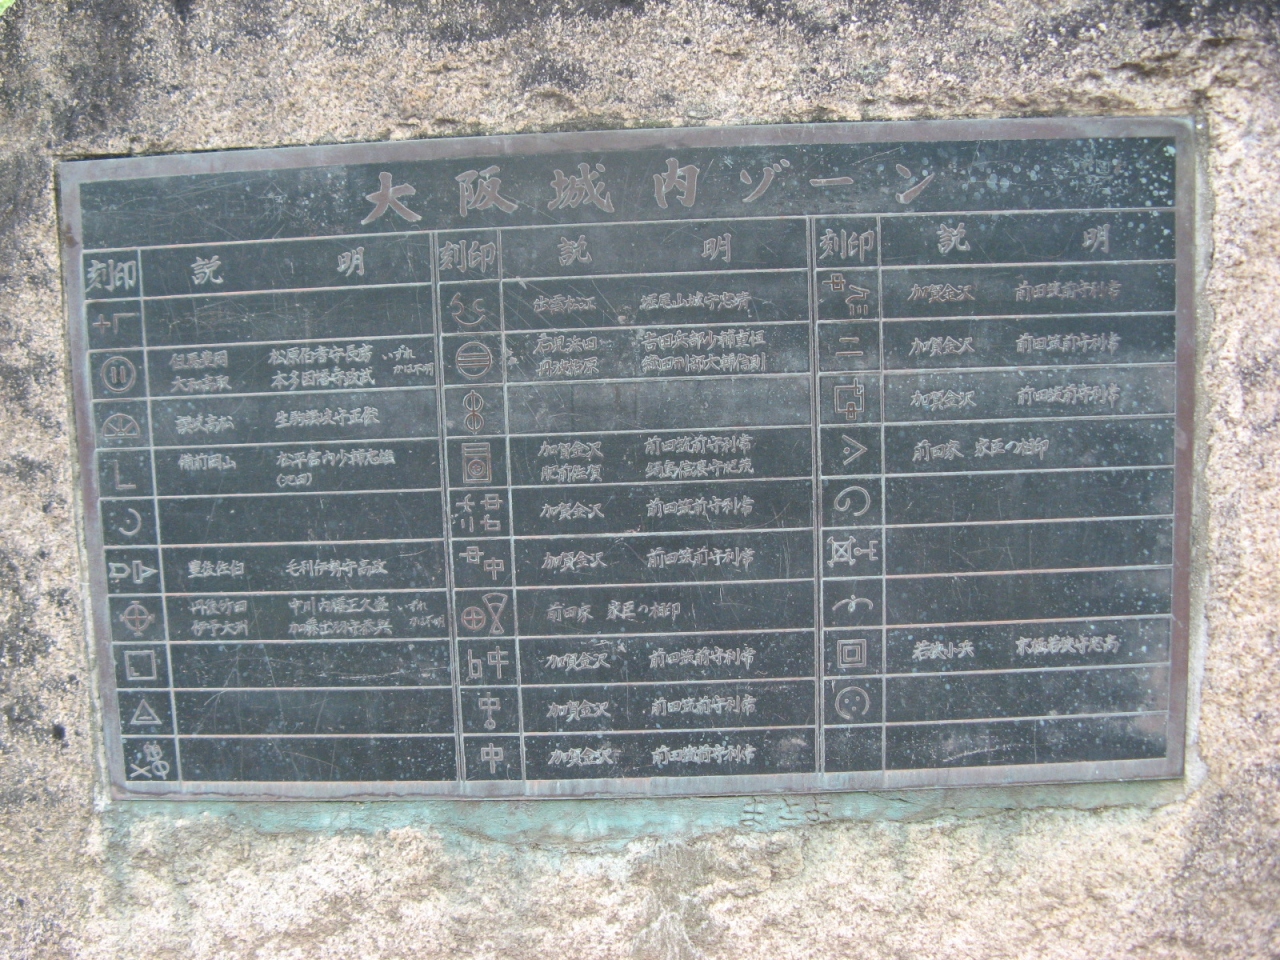 大阪城内ゾーン
刻印 説明
但馬豊岡 松原 守長 いずれ
大和高取 本多因幡守政武 かは不明
讃岐高松 生駒讃岐守正俊
備前岡山 松平宮内少輔忠雄
(池田)
豊後佐伯 毛利伊勢守高政
丹後竹田 中川内膳正久盛 いずれ
伊予大洲 加藤出羽守泰興 かは不明
刻印 説明
出雲松江 堀尾山城守忠晴
石見浜田 吉田兵部少輔重恒
丹波柏原 織田刑部大輔信則
加賀金沢 前田筑前守利常
肥前佐賀 鍋島信濃守 茂
加賀金沢 前田筑前守利常
加賀金沢 前田筑前守利常
前田家 家臣の相印
加賀金沢 前田筑前守利常
加賀金沢 前田筑前守利常
中 加賀金沢 前田筑前守利常
刻印 説明
加賀金沢 前田筑前守利常
加賀金沢 前田筑前守利常
加賀金沢 前田筑前守利常
前田家 家臣の相印
若狭小浜 京極若狭守忠高